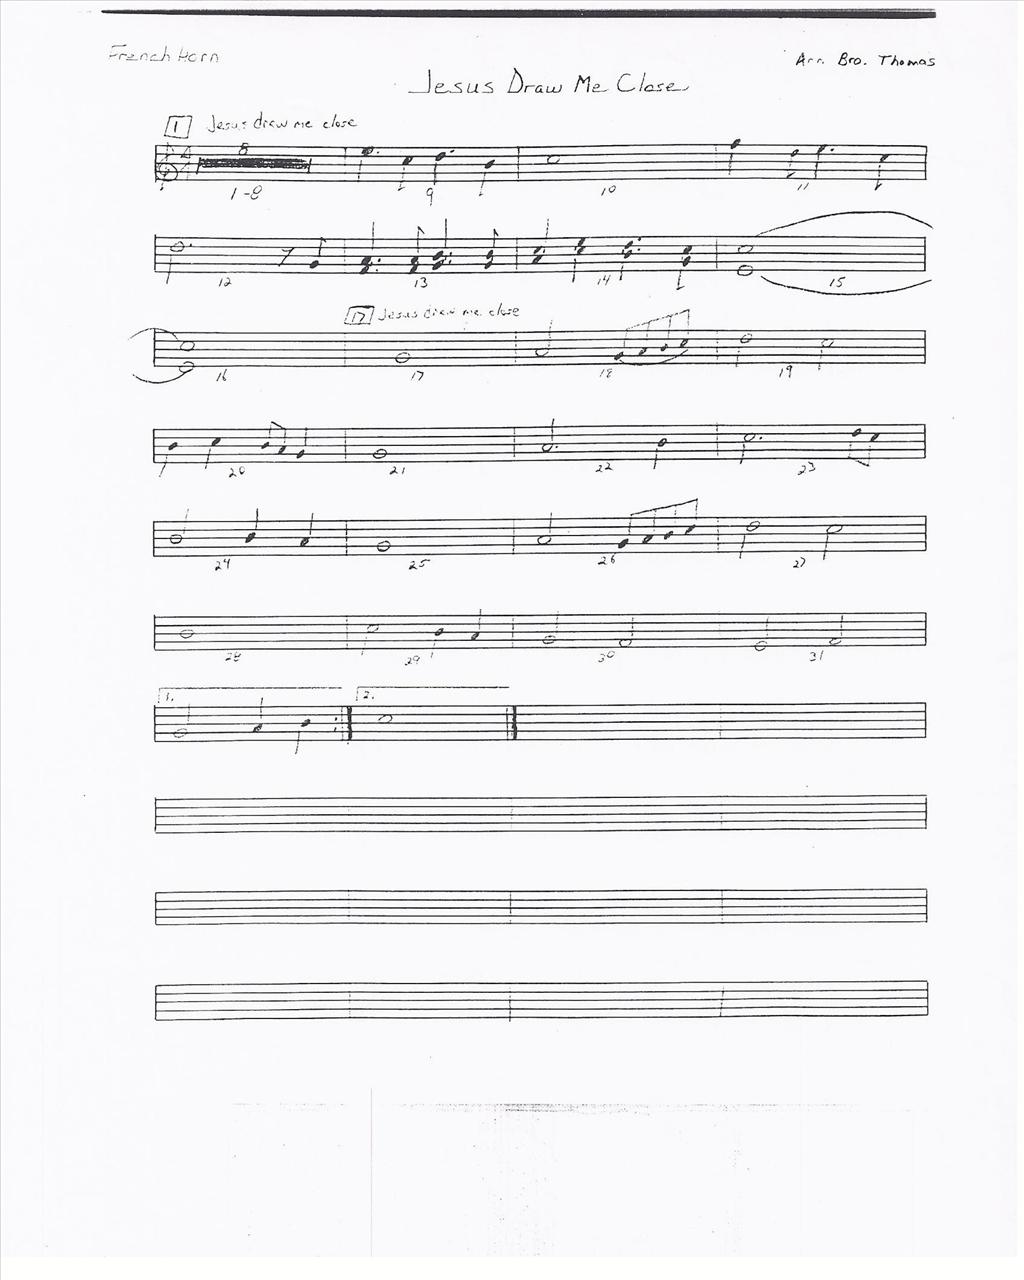 French Horn
Arr. Bro. Thomas
Jesus Draw Me Close
1 Jesus draw me close
8
4
4
1-8 9 10 11
12 13 14 15
17 Jesus draw me close
16 17 18 19
20 21 22 23
24 25 26 27
28 29 30 31
1. 2.